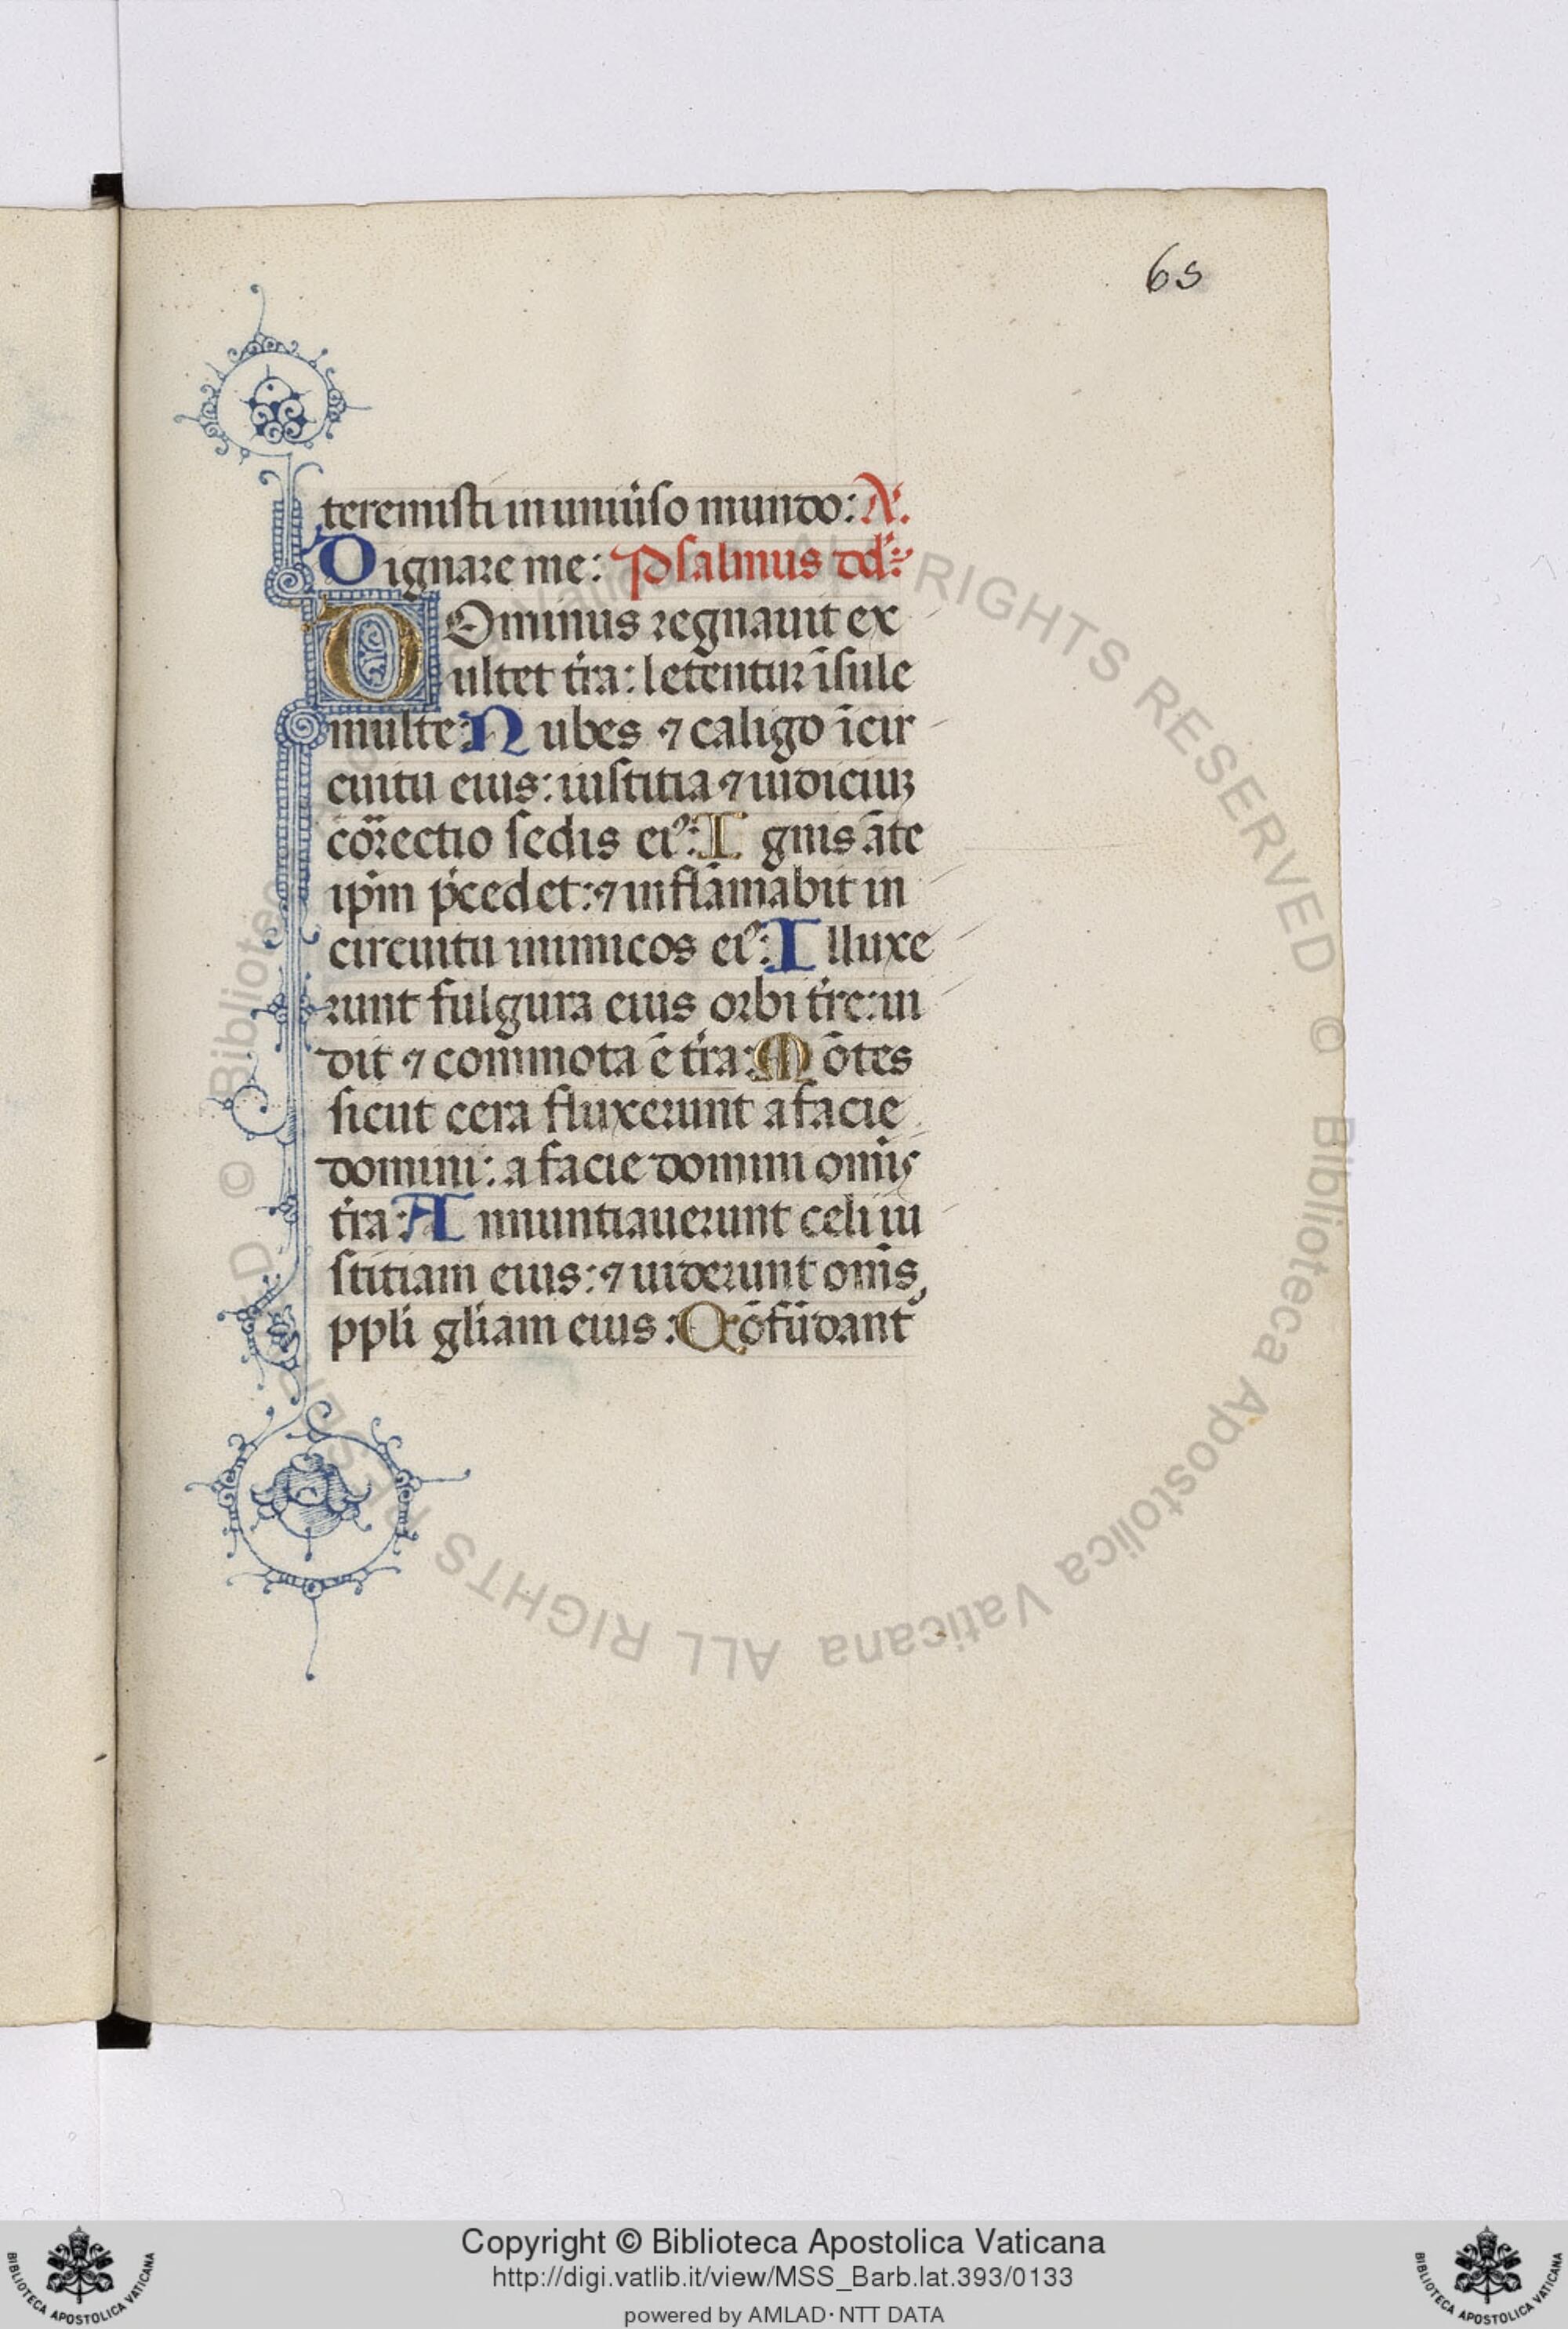 65
teremisti in uniũso mundo: A.
Dignare me: Psalmus dd̃:
DOminus regnauit ex
ultet tr̃a: letentur ĩsule
multe: Nubes ⁊ caligo ĩ cir
cuitu eius: iustitia ⁊ iudiciuꝫ
cor̃ectio sedis eiꝰ: Ignis ãte
ip̃m p̃cedet: ⁊ inflãmabit in
circuitu inimicos eiꝰ: Illuxe
runt fulgura eius orbi tr̃e: ui
dit ⁊ commota ẽ tr̃a: Mõtes
sicut cera fluxerunt a facie
domini: a facie domini om̃is
tr̃a: Annuntiauerunt celi iu
stitiam eius: ⁊ uiderunt om̃s
pp̃li gl̃iam eius: Cõfũdant᷑
© Biblioteca Apostolica Vaticana ALL RIGHTS RESERVED © Biblioteca Apostolica Vaticana ALL RIGHTS RESERVED
Copyright © Biblioteca Apostolica Vaticana
http://digi.vatlib.it/view/MSS_Barb.lat.393/0133
powered by AMLAD·NTT DATA
BIBLIOTECA APOSTOLICA VATICANA
BIBLIOTECA APOSTOLICA VATICANA